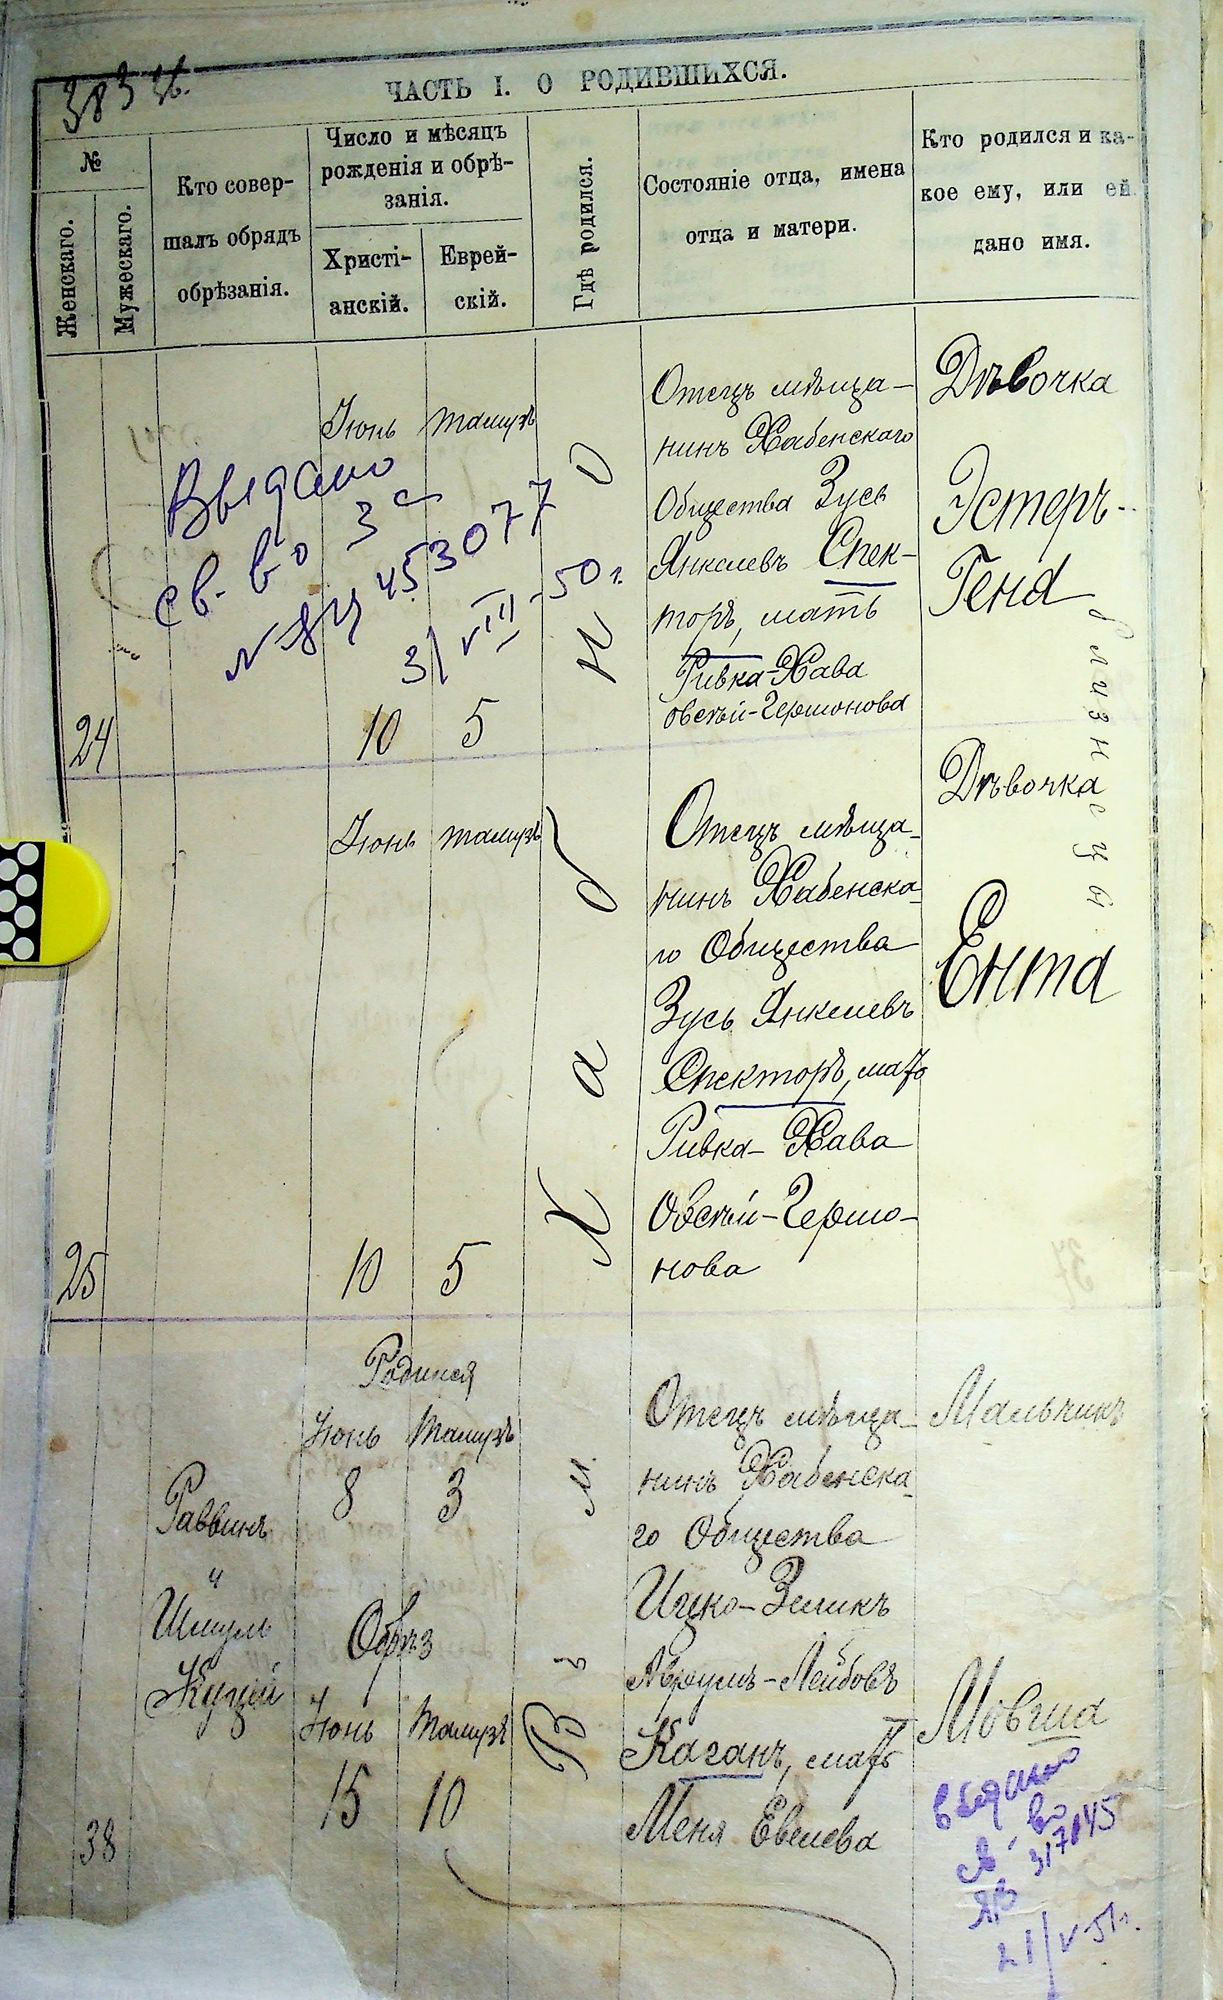 383 зв.
ЧАСТЬ I. О РОДИВШИХСЯ.
№
Женскаго.
Мужескаго.
Кто совер-
шалъ обрядъ
обрѣзанія.
Число и мѣсяцъ
рожденія и обрѣ-
занія.
Христі-
анскій.
Еврей-
скій.
Гдѣ родился.
Состояніе отца, имена
отца и матери.
Кто родился и ка-
кое ему, или ей
дано имя.
24
Выдано
св-во Зс
3/VIII-50 г.
Іюнь
10
Тамузъ
5
Отецъ мѣща-
нинъ Хабенскаго
Общества Зусь
Янкелевъ Спек-
торъ, мать
Ривка-Хава
Овсѣй-Гершонова
Дѣвочка
Эстеръ-
Геня
близнецы
25
Іюнь
10
Тамузъ
5
Въ м. Хабно
Отецъ мѣща-
нинъ Хабенска-
го Общества
Зусь Янкелевъ
Спекторъ, мать
Ривка-Хава
Овсѣй-Гершо-
нова
Дѣвочка
Ента
38
Раввинъ
и
Шмуль
Куцій
Родился
Іюнь
8
Тамузъ
3
Обрѣз
Іюнь
15
Тамузъ
10
Отецъ мѣща-
нинъ Хабенска-
го Общества
Ицко-Зеликъ
Аврумъ-Лейбовъ
Каганъ, мать
Меня Евелева
Мальчикъ
Мовша
выдано
св-во
ЯВ 317845
21/V 51 г.